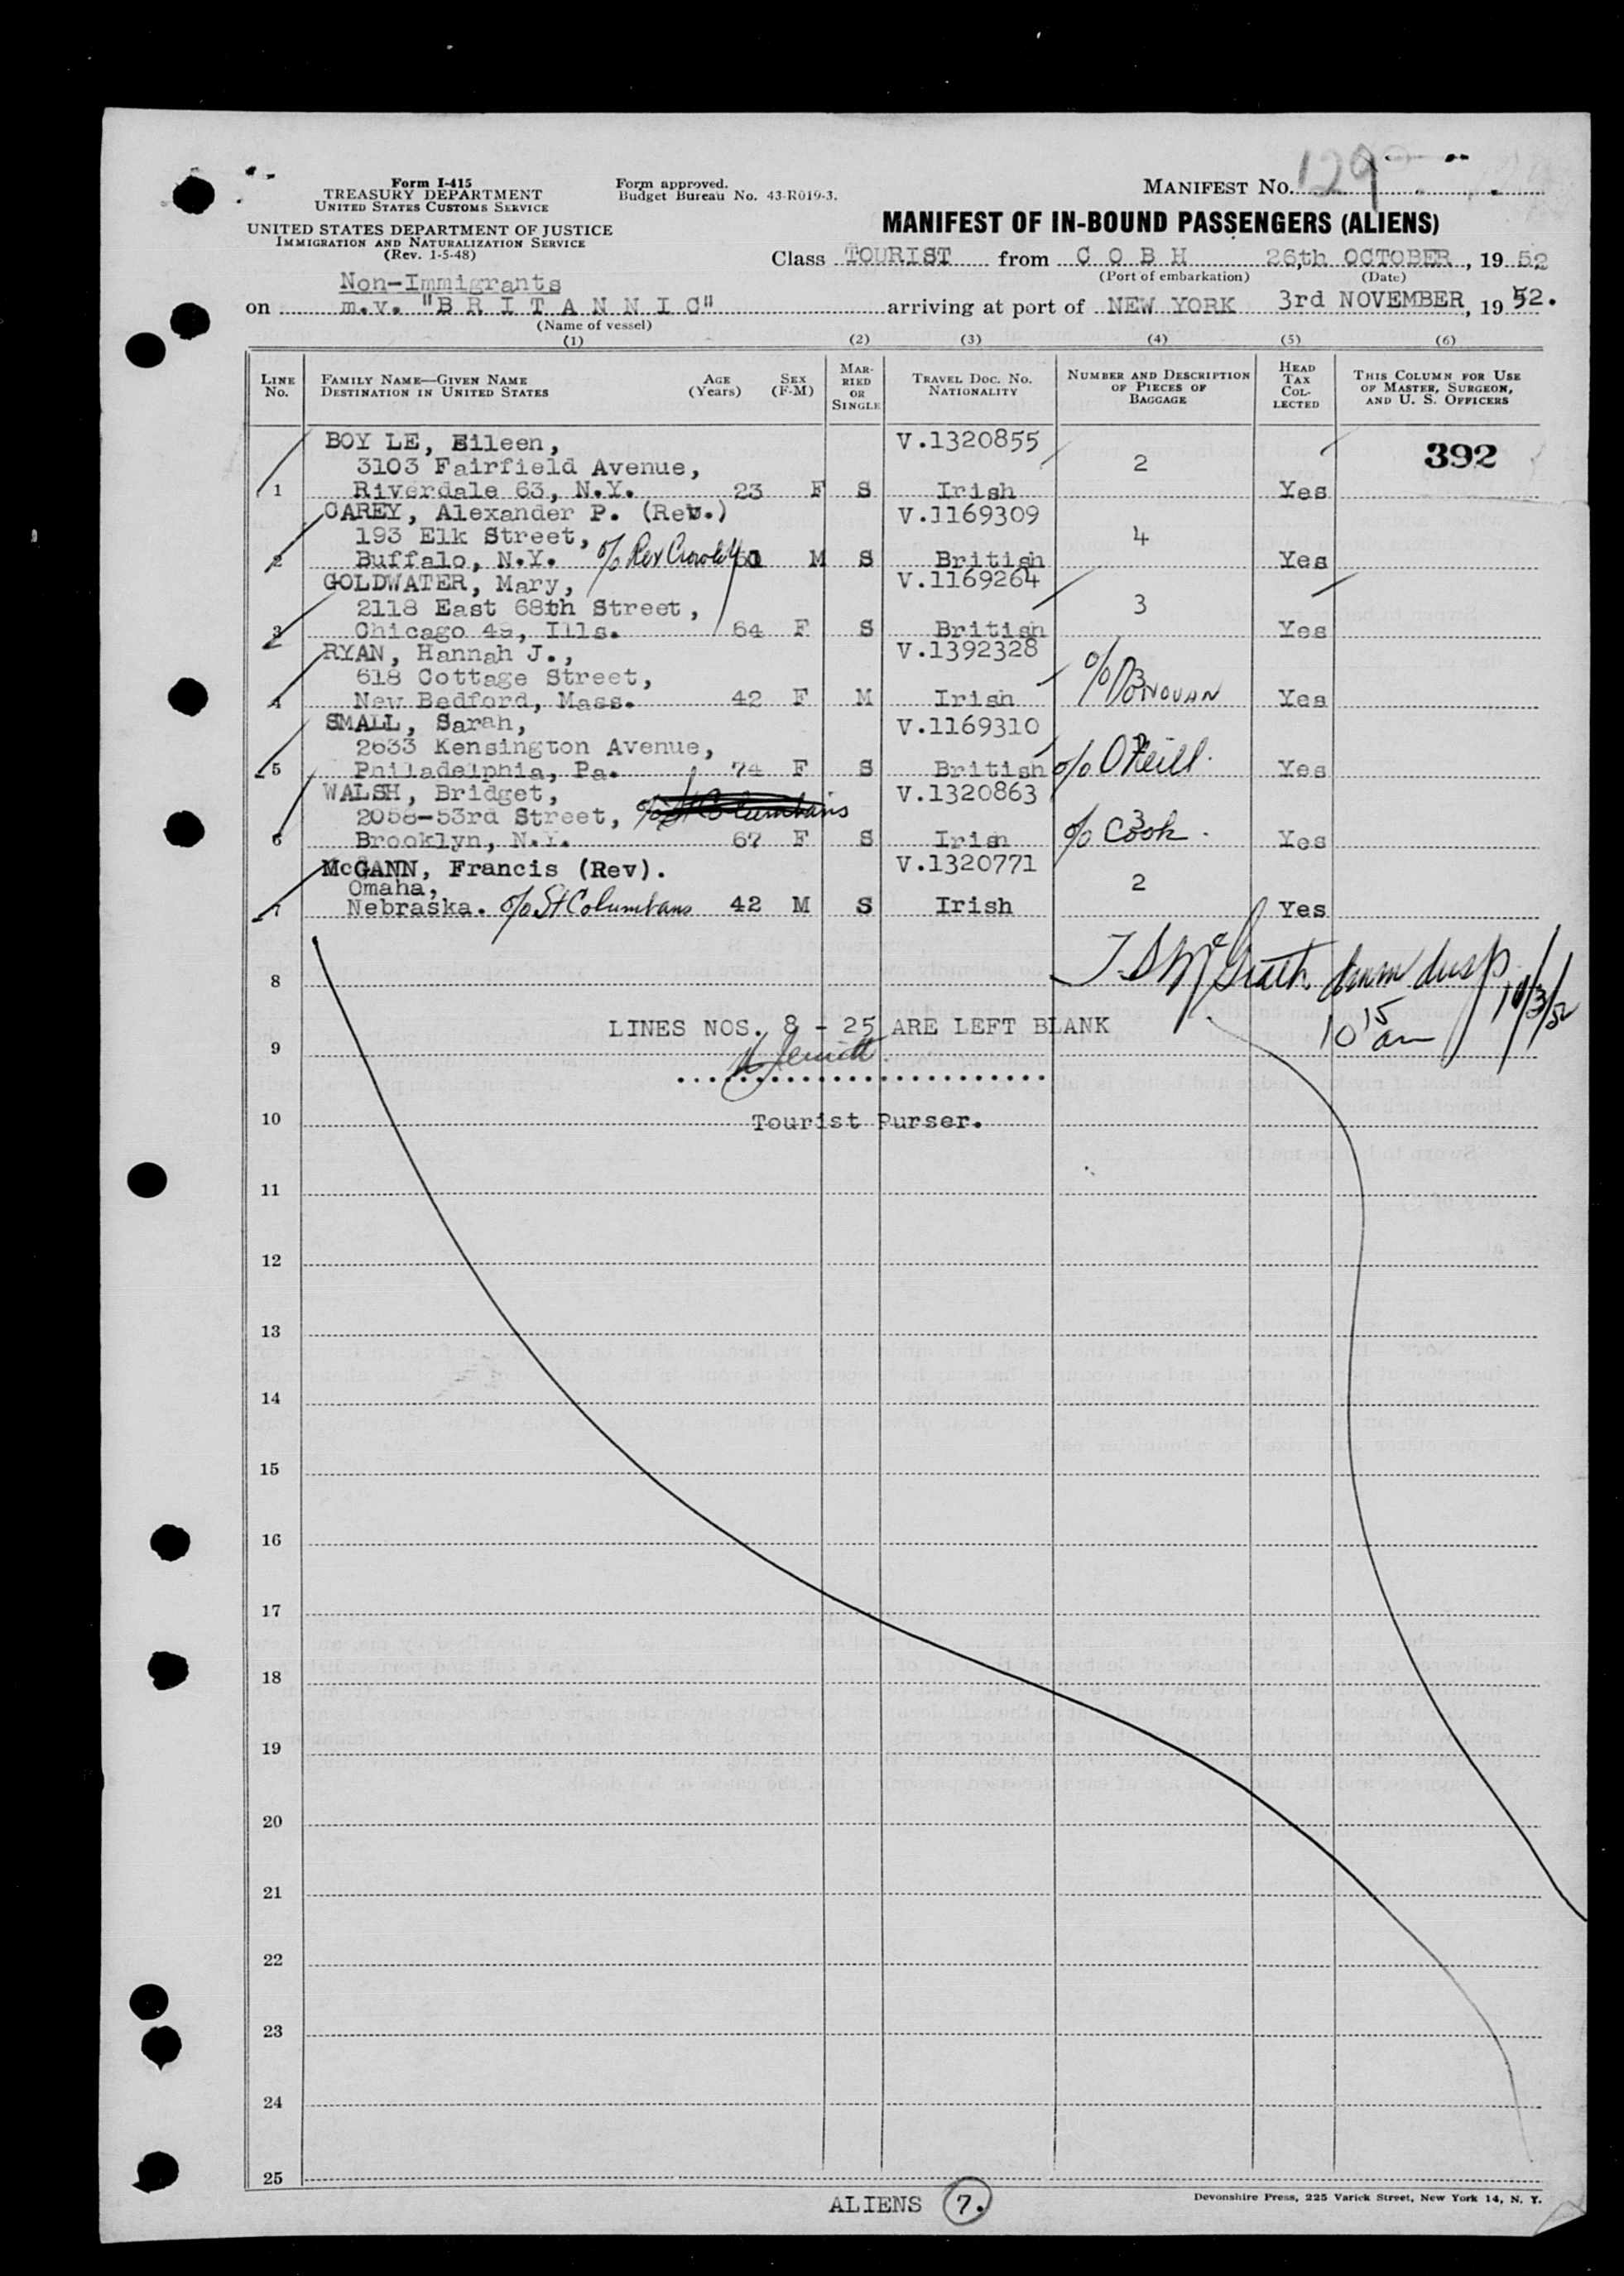 Form I-415
TREASURY DEPARTMENT
UNITED STATES CUSTOMS SERVICE
UNITED STATES DEPARTMENT OF JUSTICE
IMMIGRATION AND NATURALIZATION SERVICE
(Rev. 1-5-48)
Form approved.
Budget Bureau No. 43-R019-3.
MANIFEST NO. 129
MANIFEST OF IN-BOUND PASSENGERS (ALIENS)
Class TOURIST from C O B H 26th OCTOBER, 1952
(Port of embarkation) (Date)
Non-Immigrants
on m.v. "B R I T A N N I C" arriving at port of NEW YORK 3rd NOVEMBER, 1952.
(Name of vessel)
(1) (2) (3) (4) (5) (6)
LINE NO. FAMILY NAME—GIVEN NAME DESTINATION IN UNITED STATES AGE (Years) SEX (F-M) MARRIED OR SINGLE TRAVEL DOC. NO. NATIONALITY NUMBER AND DESCRIPTION OF PIECES OF BAGGAGE HEAD TAX COLLECTED THIS COLUMN FOR USE OF MASTER, SURGEON, AND U. S. OFFICERS
BOY LE, Eileen, V.1320855 392
3103 Fairfield Avenue, 2
1 Riverdale 63, N.Y. 23 F S Irish Yes
CAREY, Alexander P. (Rev.) V.1169309
193 Elk Street, 4
2 Buffalo, N.Y. c/o Rev M S British Yes
GOLDWATER, Mary, V.1169264
2118 East 68th Street, 3
3 Chicago 49, Ills. 64 F S British Yes
RYAN, Hannah J., V.1392328
618 Cottage Street, 3
4 New Bedford, Mass. 42 F M Irish c/o DONOVAN Yes
SMALL, Sarah, V.1169310
2633 Kensington Avenue,
5 Philadelphia, Pa. 74 F S British c/o O'Neill. Yes
WALSH, Bridget, V.1320863
2058-53rd Street, c/o St Columbans 3
6 Brooklyn, N.Y. 67 F S Irish c/o Cook. Yes
McGANN, Francis (Rev). V.1320771
Omaha, 2
7 Nebraska. c/o St Columbans 42 M S Irish Yes
8 T S McGrath Imm Insp 11/3/52
10 15 am
LINES NOS. 8 - 25 ARE LEFT BLANK
9
10 Tourist Purser.
11
12
13
14
15
16
17
18
19
20
21
22
23
24
25
ALIENS 7.
Devonshire Press, 225 Varick Street, New York 14, N. Y.